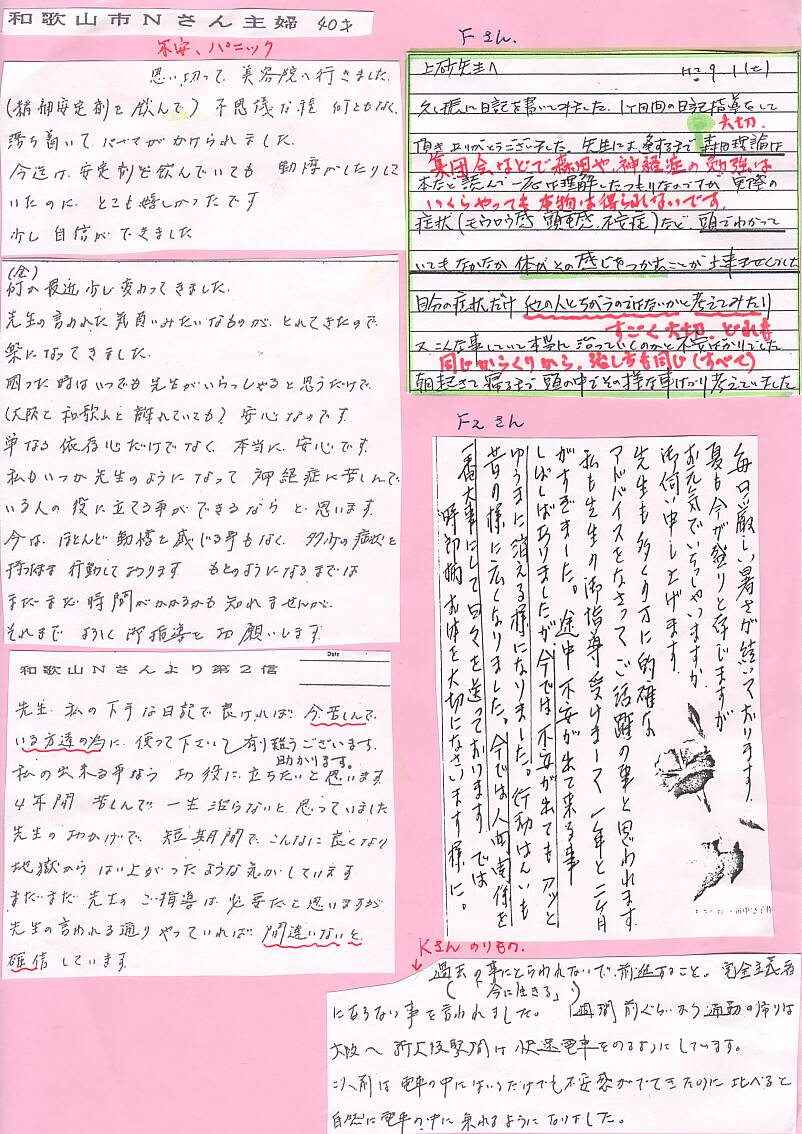 和歌山市Nさん主婦 40才
不安、パニック
思い切って 美容院へ行きました。
(精神安定剤を飲んで) 不思議な程 何ともなく、
落ち着いて パーマがかけられました。
今迄は、安定剤を飲んでいても 動悸がしたりして
いたのに とても嬉しかったです
少し自信ができました
(金)
何か最近少し変わってきました。
先生の言われた気負いみたいなものが、とれてきたので、
楽になってきました。
困った時はいつでも先生がいらっしゃると思うだけで、
(大阪と和歌山と離れていても) 安心なのです。
単なる依存心だけでなく、本当に、安心です。
私もいつか先生のようになって 神経症に苦しんで、
いる人の役に立てる事ができるなら と思います。
今は、ほとんど動悸を感じる事もなく 多少の症状を
行動しております。もとのようになるまでは
まだまだ時間がかかるかも知れませんが、
それまで よろしく御指導を お願いします。
Date
和歌山Nさんより第2信
先生、私の下手な日記で良ければ 今苦しんで、
いる方達の為に、使って下さい 有り難うございます。
助かります。
私の出来る事なら お役に立ちたいと思います。
4年間 苦しんで 一生治らないと思っていました
先生のおかげで、短期間で、こんなに良くなり
地獄からはい上がったような気がしています
まだまだ先生のご指導は必要だと思いますが
先生の言われる通りやっていれば 間違いないと
確信しています。
Fさん.
上砂先生へ 9.1(土)
久し振に日記を書いてみました。1ヶ月間の日記指導をして
大切.
頂きありがとうございました。先生にお会するまで 森田理論は
集団会などで森田や、神経症の勉強は
本など読んで一応は理解したつもりなのですが 実際の
いくらやっても本物は得られないです。
症状(モウロウ感 頭重感 不安症)など、頭でわかって
いてもなかなか 体がその感じをつかむことが出来ませんでした
自分の症状だけ 他の人とちがうのではないかと考えてみたり
すごく大切、どれも
又こんな事していて本当に治っていくのかと不安ばかりでした
同じからくりから、治し方も同じ(すべて)
朝起きて寝るまで 頭の中でその様な事ばかり考えていました
F2 さん
毎日厳しい暑さが続いております。
夏も今が盛りと存じますが
お元気でいらっしゃいますか。
御伺い申し上げます
先生も多くの方に的確な
アドバイスをなさって ご活躍の事と思われます。
私も先生の御指導 受けまして 一年と二ヶ月
がすぎました。途中 不安が出て来る事
しばしばありましたが今では不安が出てもアッと
ゆうまに消える様になりました。行動はんいも
昔の様に広くなりました。今では人間関係を
一番大事にして日々を送っております。では
時節柄 お体を大切になさいます様に。
Kさん のりもの.
過去の事にとらわれないで、前進すること。完全主義者
(「今に生きる」)
にならない事を言われました。1週間前ぐらいから通勤の帰りは
大阪へ 新大阪駅間は快速電車をのるようにしています。
以前は電車の中にはいるだけでも不安感がでてきたのに比べると
自然に電車の中に乗れるようになりました。